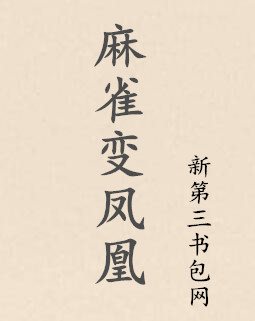 麻雀变凤凰
新第三书包网